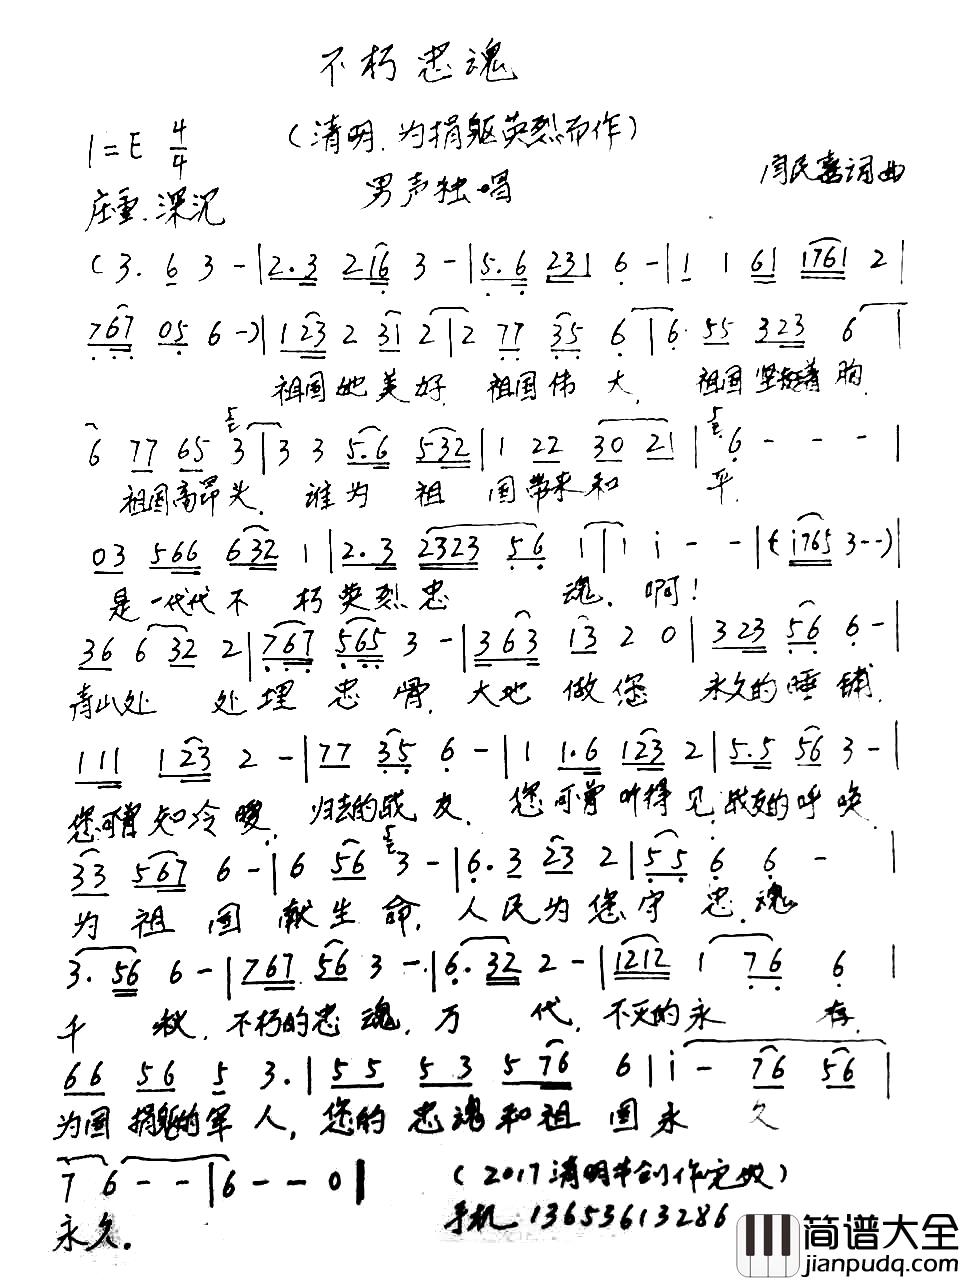 不朽忠魂
(清明.为捐躯英烈而作)
1=E 4/4
男声独唱
闫民嘉词曲
庄重.深沉
(3. 6 3 - | 2.3 216 3 - | 5.6 231 6 - | 1 1 61 1761 2 |
767 05 6 -) | 123 2 31 2 | 2 77 35 6 | 6. 55 323 6 |
祖国她美好. 祖国伟大, 祖国坚挺着胸.
6 77 65 3 | 3 3 5.6 532 | 1 22 30 2 | 6 - - - |
祖国高昂头. 谁为祖国带来和平.
03 566 632 1 | 2.3 2323 56 i | i i - - | (i765 3 - -) |
是一代代不朽英烈忠魂. 啊!
36 6 32 2 | 767 565 3 - | 363 13 2 0 | 323 56 6 - |
青山处处埋忠骨, 大地做您永久的睡铺.
111 123 2 - | 77 35 6 - | 1 1.6 123 2 | 5.5 56 3 - |
您可曾知冷暖, 归去的战友, 您可曾听得见战友的呼唤.
33 567 6 - | 6 56 3 - | 6.3 23 2 | 55 6 6 - |
为祖国献生命, 人民为您守忠魂
3.56 6 - | 767 56 3 - | 6.32 2 - | 1212 1 76 6 |
千秋, 不朽的忠魂, 万代, 不灭的永存.
66 56 5 3. | 55 53 576 6 | i - 76 56 |
为国捐躯的军人, 您的忠魂和祖国永久
7 6 - - | 6 - - 0 |
永久.
(2017清明节创作完成)
手机 13653613286
简谱大全
jianpudq.com